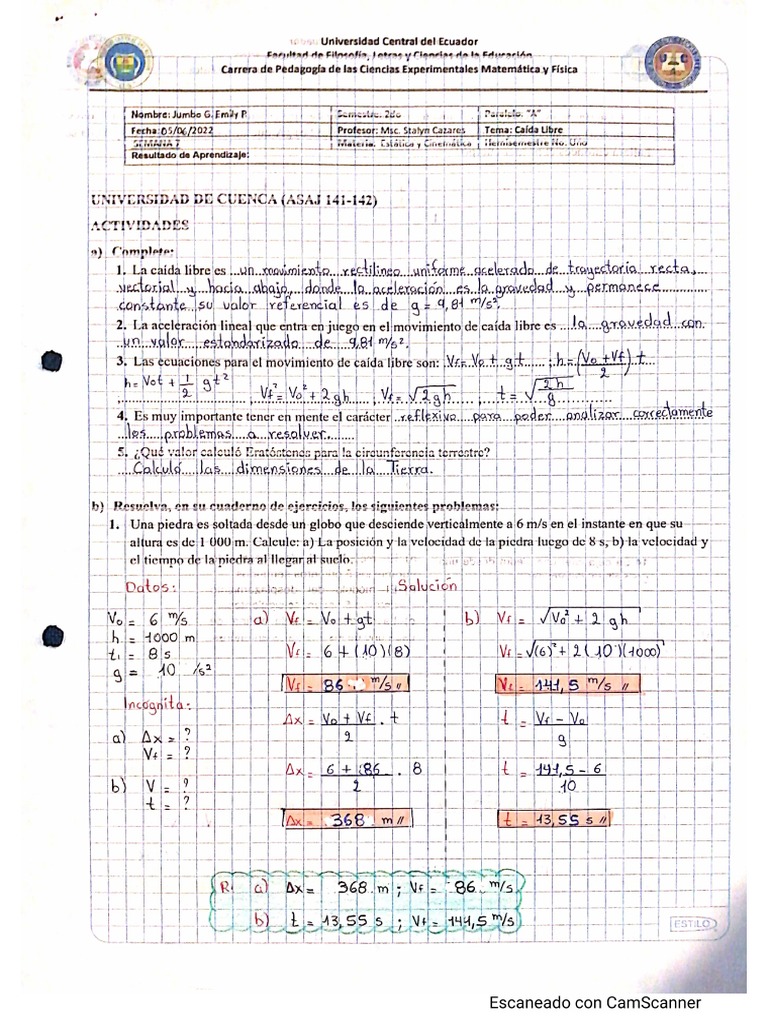 Universidad Central del Ecuador
Facultad de Filosofía, Letras y Ciencias de la Educación
Carrera de Pedagogía de las Ciencias Experimentales Matemática y Física
Nombre: Jumbo G. Emily P. Semestre: 2do Paralelo: "A"
Fecha: 05/06/2022 Profesor: Msc. Stalyn Cazares Tema: Caída Libre
SEMANA 7 Materia: Estática y Cinemática Hemisemestre No. Uno
Resultado de Aprendizaje:
UNIVERSIDAD DE CUENCA (ASAJ 141-142)
ACTIVIDADES
a) Complete:
1. La caída libre es ...un movimiento rectilineo uniforme acelerado de trayectoria recta,
vectorial y hacia abajo, donde la aceleración es la gravedad y permanece
constante su valor referencial es de g = 9,81 m/s².
2. La aceleración lineal que entra en juego en el movimiento de caída libre es ...la gravedad con
un valor estandarizado de 9,81 m/s².
3. Las ecuaciones para el movimiento de caída libre son: Vf = Vo + gt ; h = (Vo + Vf / 2) t
h = Vot + 1/2 gt² ; Vf² = Vo² + 2gh ; Vf = √2gh ; t = √2h/g
4. Es muy importante tener en mente el carácter reflexivo para poder analizar correctamente
los problemas a resolver.
5. ¿Qué valor calculó Eratóstenes para la circunferencia terrestre?
Calculó las dimensiones de la Tierra.
b) Resuelva, en su cuaderno de ejercicios, los siguientes problemas:
1. Una piedra es soltada desde un globo que desciende verticalmente a 6 m/s en el instante en que su
altura es de 1 000 m. Calcule: a) La posición y la velocidad de la piedra luego de 8 s, b) la velocidad y
el tiempo de la piedra al llegar al suelo.
Datos: Solución
Vo = 6 m/s a) Vf = Vo + gt b) Vf = √Vo² + 2 gh
h = 1000 m
t1 = 8 s Vf = 6 + (10)(8) Vf = √(6)² + 2(10)(1000)
g = 10 /s²
Vf = 86 m/s // Vf = 141,5 m/s //
Incognita:
a) Δx = ? Δx = Vo + Vf / 2 . t t = Vf - Vo / g
Vf = ?
b) V = ? Δx = 6 + 86 / 2 . 8 t = 141,5 - 6 / 10
t = ?
Δx = 368 m // t = 13,55 s //
R. a) Δx = 368 m ; Vf = 86 m/s
b) t = 13,55 s ; Vf = 141,5 m/s
ESTILO
Escaneado con CamScanner